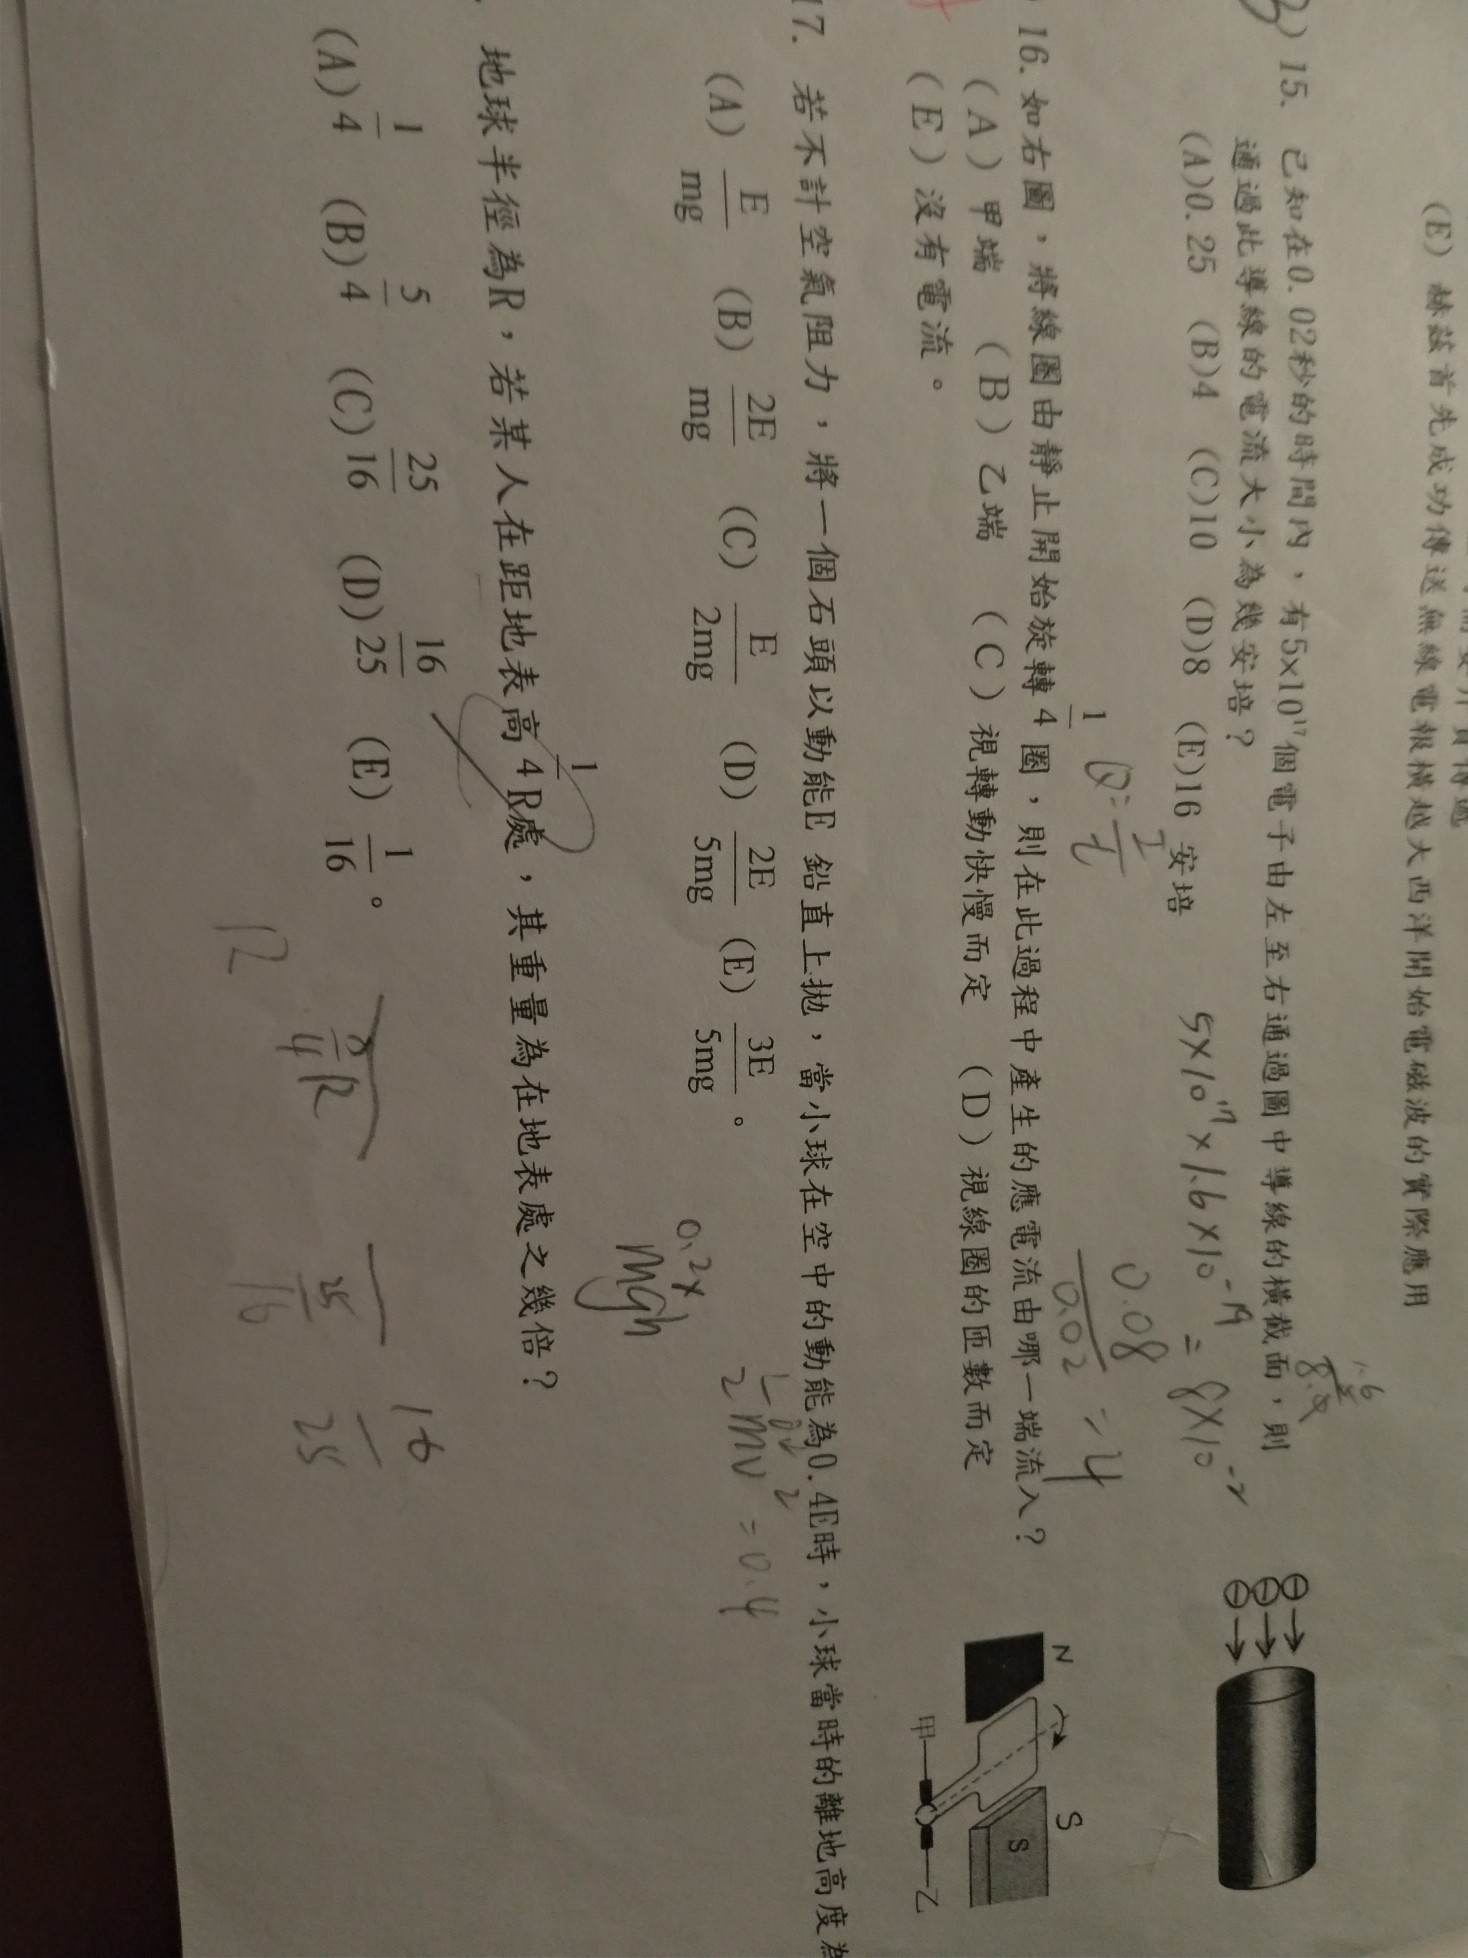 (E) 赫茲首先成功傳送無線電報橫越大西洋開始電磁波的實際應用
) 15. 已知在0.02秒的時間內，有5x10¹⁷個電子由左至右通過圖中導線的橫截面，則
通過此導線的電流大小為幾安培？
(A)0.25 (B)4 (C)10 (D)8 (E)16 安培
5×10¹⁷×1.6×10⁻¹⁹ = 8×10⁻²
0.08/0.02 = 4
Q = I/t
) 16. 如右圖，將線圈由靜止開始旋轉 1/4 圈，則在此過程中產生的應電流由哪一端流入？
(A) 甲端 (B) 乙端 (C) 視轉動快慢而定 (D) 視線圈的匝數而定
(E) 沒有電流。
N S
S
甲 乙
17. 若不計空氣阻力，將一個石頭以動能E 鉛直上拋，當小球在空中的動能為0.4E時，小球當時的離地高度為
(A) E/mg (B) 2E/mg (C) E/2mg (D) 2E/5mg (E) 3E/5mg 。
mgh
地球半徑為R，若某人在距地表高 1/4 R處，其重量為在地表處之幾倍？
(A) 1/4 (B) 5/4 (C) 25/16 (D) 16/25 (E) 1/16 。
25/16
16/25